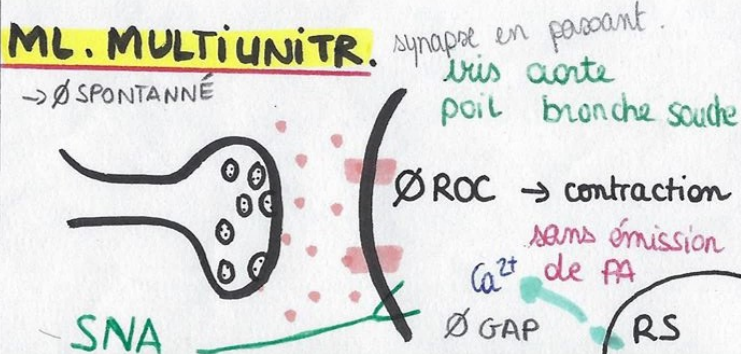 ML. MULTIUNITR. synapse en passant.
→ Ø SPONTANNÉ
iris aorte
poil bronche souche
Ø ROC → contraction
sans émission
de PA
Ca²⁺
Ø GAP
RS
SNA